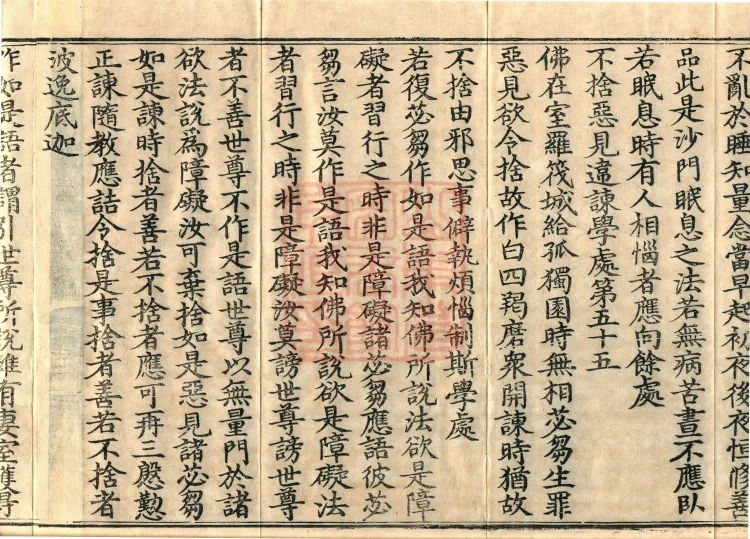 不亂於睡知量念當早起初夜後夜恒修善
品此是沙門眠息之法若無病苦晝不應臥
若眠息時有人相惱者應向餘處
不捨惡見違諫學處第五十五
佛在室羅筏城給孤獨園時無相苾芻生罪
惡見欲令捨故作白四羯磨衆開諫時猶故
不捨由邪思事僻執煩惱制斯學處
若復苾芻作如是語我知佛所說法欲是障
礙者習行之時非是障礙諸苾芻應語彼苾
芻言汝莫作是語我知佛所說欲是障礙法
者習行之時非是障礙汝莫謗世尊謗世尊
者不善世尊不作是語世尊以無量門於諸
欲法說爲障礙汝可棄捨如是惡見諸苾芻
如是諫時捨者善若不捨者應可再三慇懃
正諫隨教應詰令捨是事捨者善若不捨者
波逸底迦
作如是語者謂引世尊所說雖有妻室獲得